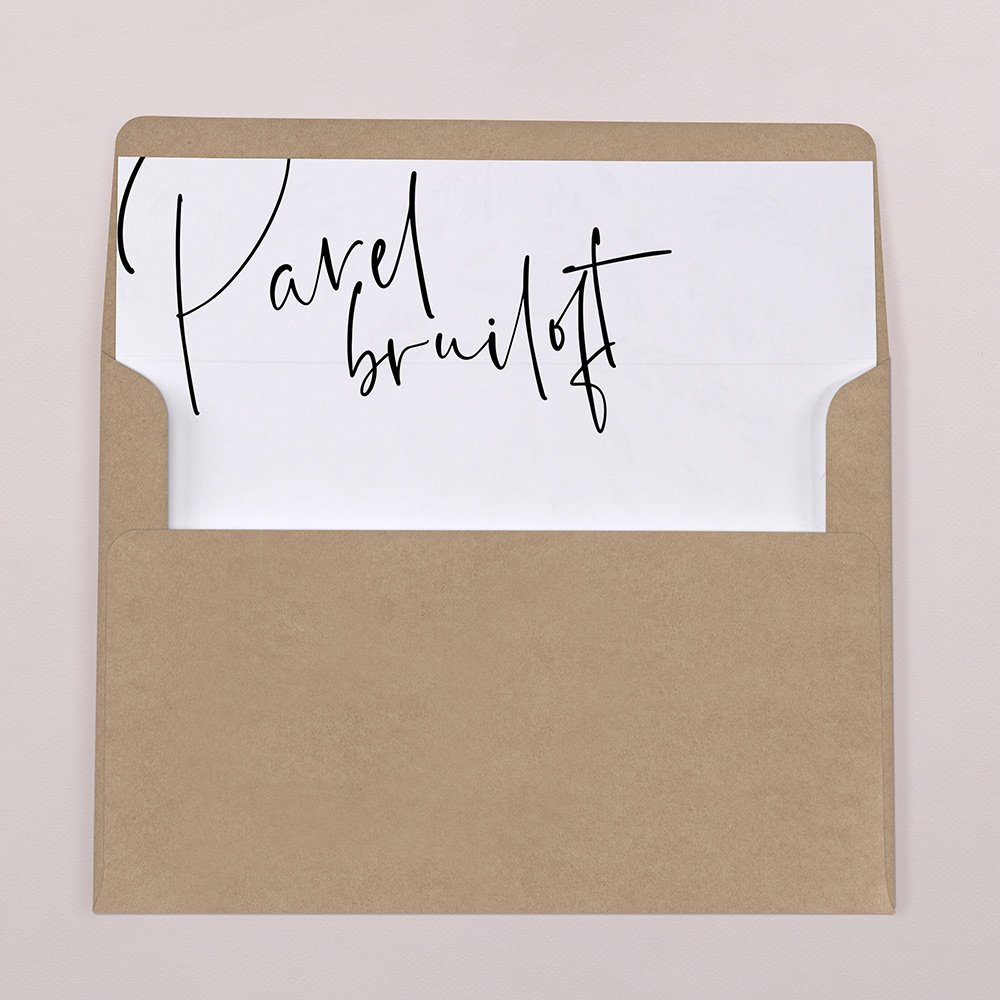 Parel
bruiloft